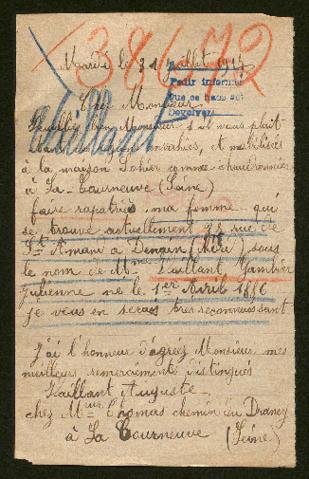 Mardi le 31 juillet 1917
38672
Pedir informes
Que se haga sol
Devolver
Cher Monsieur
Vaillant
Veuillez bien Monsieur s'il vous plait
régions envahies, et mobilisés
à la maison Sohier comme chaudronnier
à La Courneuve (Seine)
faire rapatriés ma femme qui
se trouve actuellement 75 rue de
St Amand à Denain (Nord) sous
le nom de Mme Vaillant Gambier
Julienne né le 1er Avril 1886
je vous en serais très reconnaissant
J'ai l'honneur d'agréez Monsieur mes
meilleurs remerciements distingués
Vaillant Auguste
chez Mme Thomas chemin du Drancy
à La Courneuve (Seine)